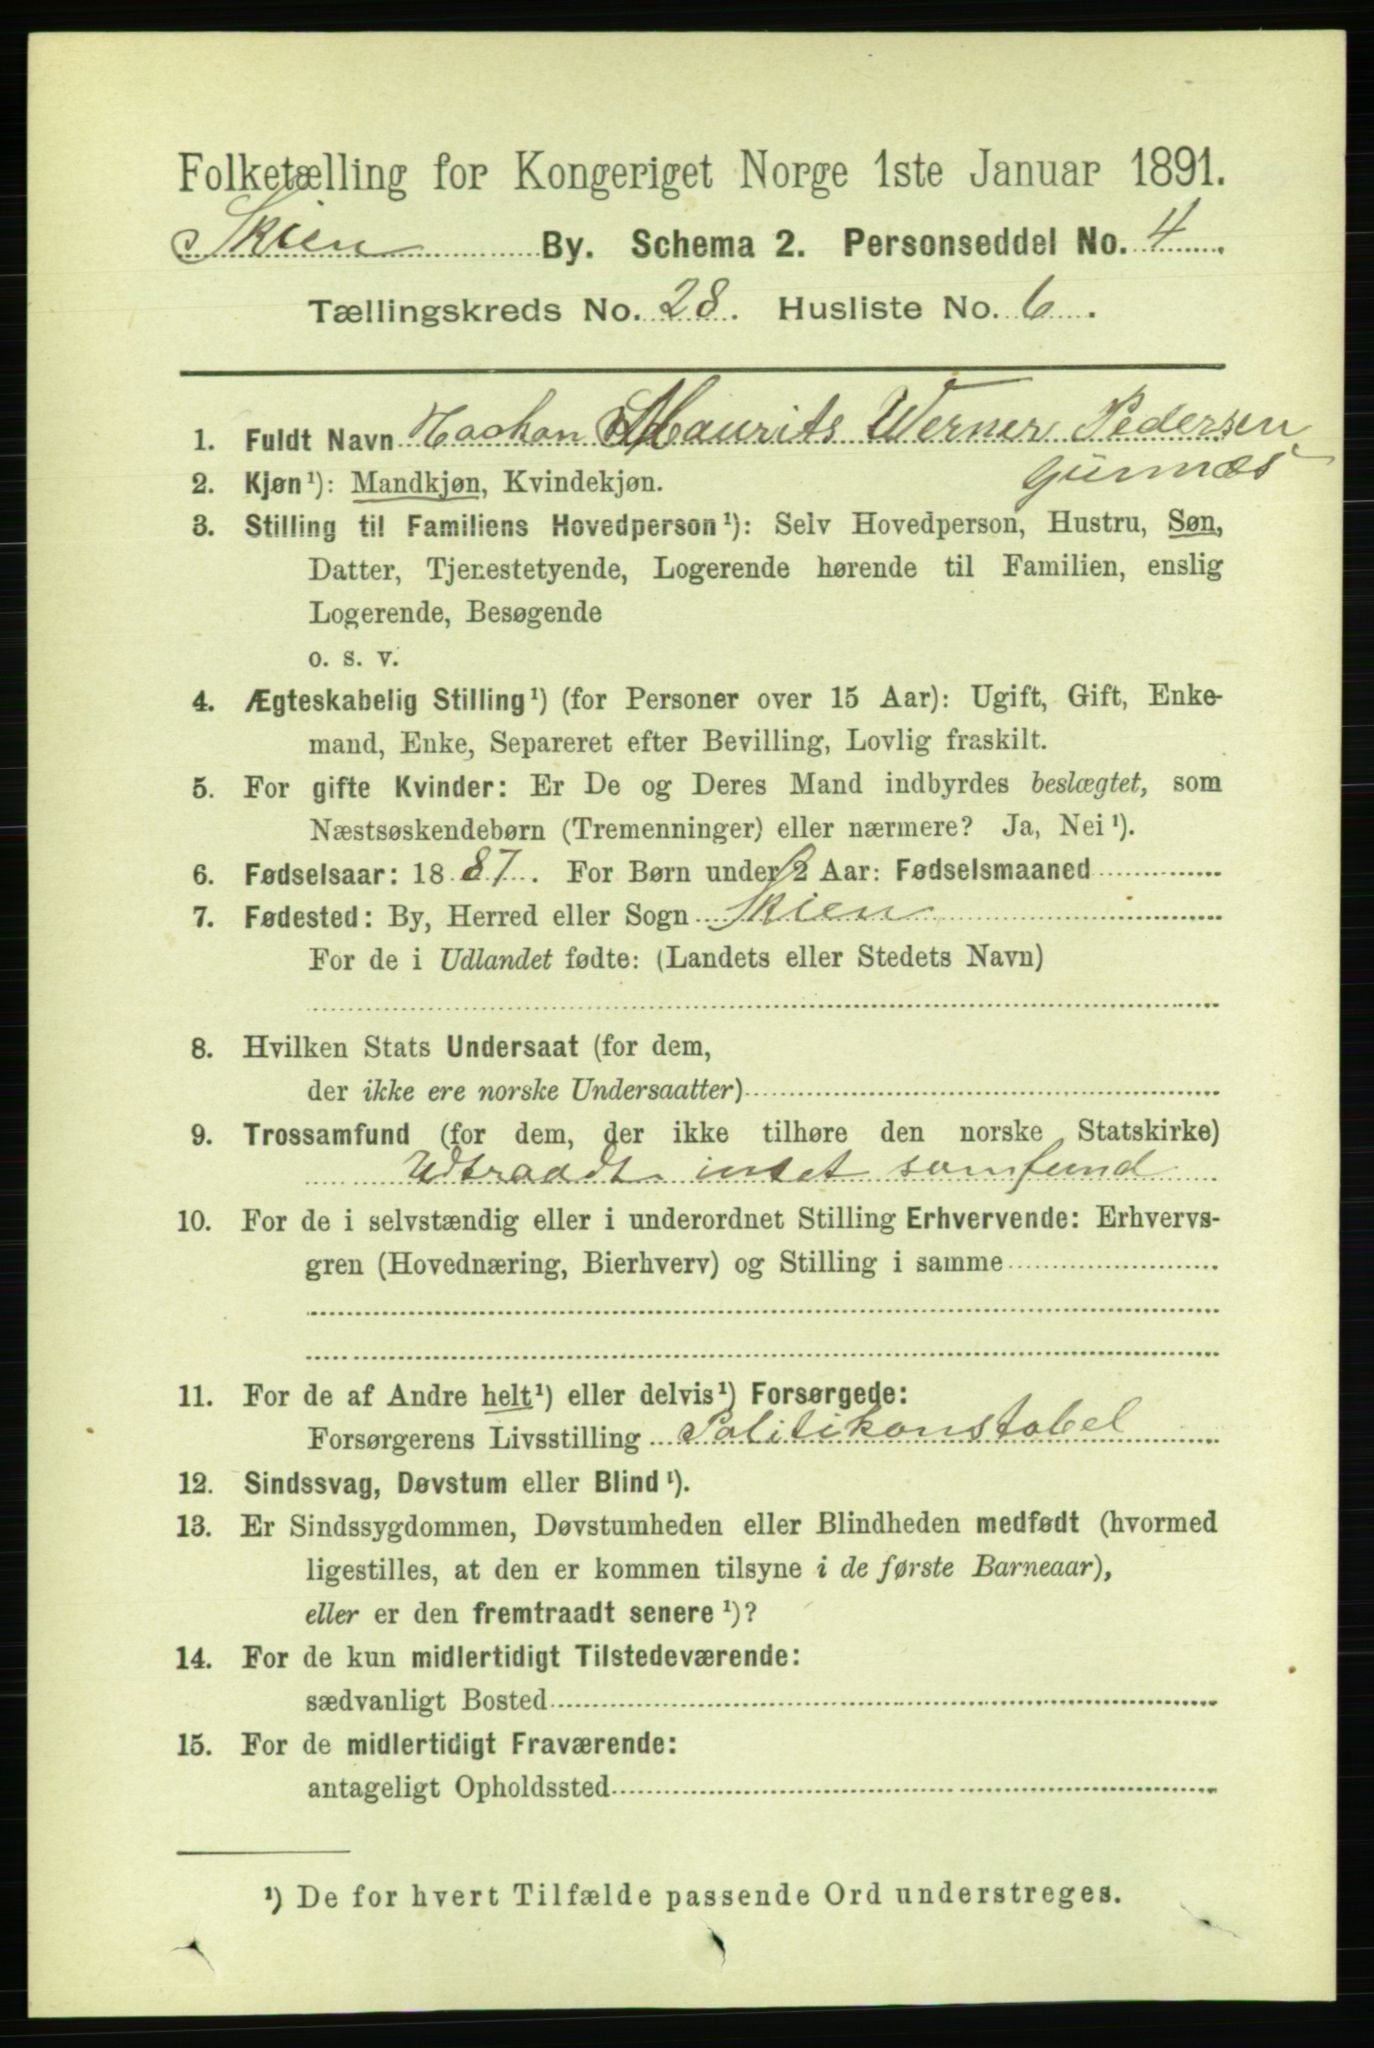 Folketælling for Kongeriget Norge 1ste Januar 1891.
Skien By. Schema 2. Personseddel No. 4.
Tællingskreds No. 28. Husliste No. 6.
1. Fuldt Navn Haakon Maurits Werner Pedersen
2. Kjøn¹): Mandkjøn, Kvindekjøn.
3. Stilling til Familiens Hovedperson¹): Selv Hovedperson, Hustru, Søn,
Datter, Tjenestetyende, Logerende hørende til Familien, enslig
Logerende, Besøgende
o. s. v.
4. Ægteskabelig Stilling¹) (for Personer over 15 Aar): Ugift, Gift, Enke-
mand, Enke, Separeret efter Bevilling, Lovlig fraskilt.
5. For gifte Kvinder: Er De og Deres Mand indbyrdes beslægtet, som
Næstsøskendebørn (Tremenninger) eller nærmere? Ja, Nei¹).
6. Fødselsaar: 1887. For Børn under 2 Aar: Fødselsmaaned
7. Fødested: By, Herred eller Sogn Skien
For de i Udlandet fødte: (Landets eller Stedets Navn)
8. Hvilken Stats Undersaat (for dem,
der ikke ere norske Undersaatter)
9. Trossamfund (for dem, der ikke tilhøre den norske Statskirke)
Udtraadt intet samfund
10. For de i selvstændig eller i underordnet Stilling Erhvervende: Erhvervs-
gren (Hovednæring, Bierhverv) og Stilling i samme
11. For de af Andre helt¹) eller delvis¹) Forsørgede:
Forsørgerens Livsstilling Politikonstabel
12. Sindssvag, Døvstum eller Blind¹).
13. Er Sindssygdommen, Døvstumheden eller Blindheden medfødt (hvormed
ligestilles, at den er kommen tilsyne i de første Barneaar),
eller er den fremtraadt senere¹)?
14. For de kun midlertidigt Tilstedeværende:
sædvanligt Bosted
15. For de midlertidigt Fraværende:
antageligt Opholdssted
¹) De for hvert Tilfælde passende Ord understreges.